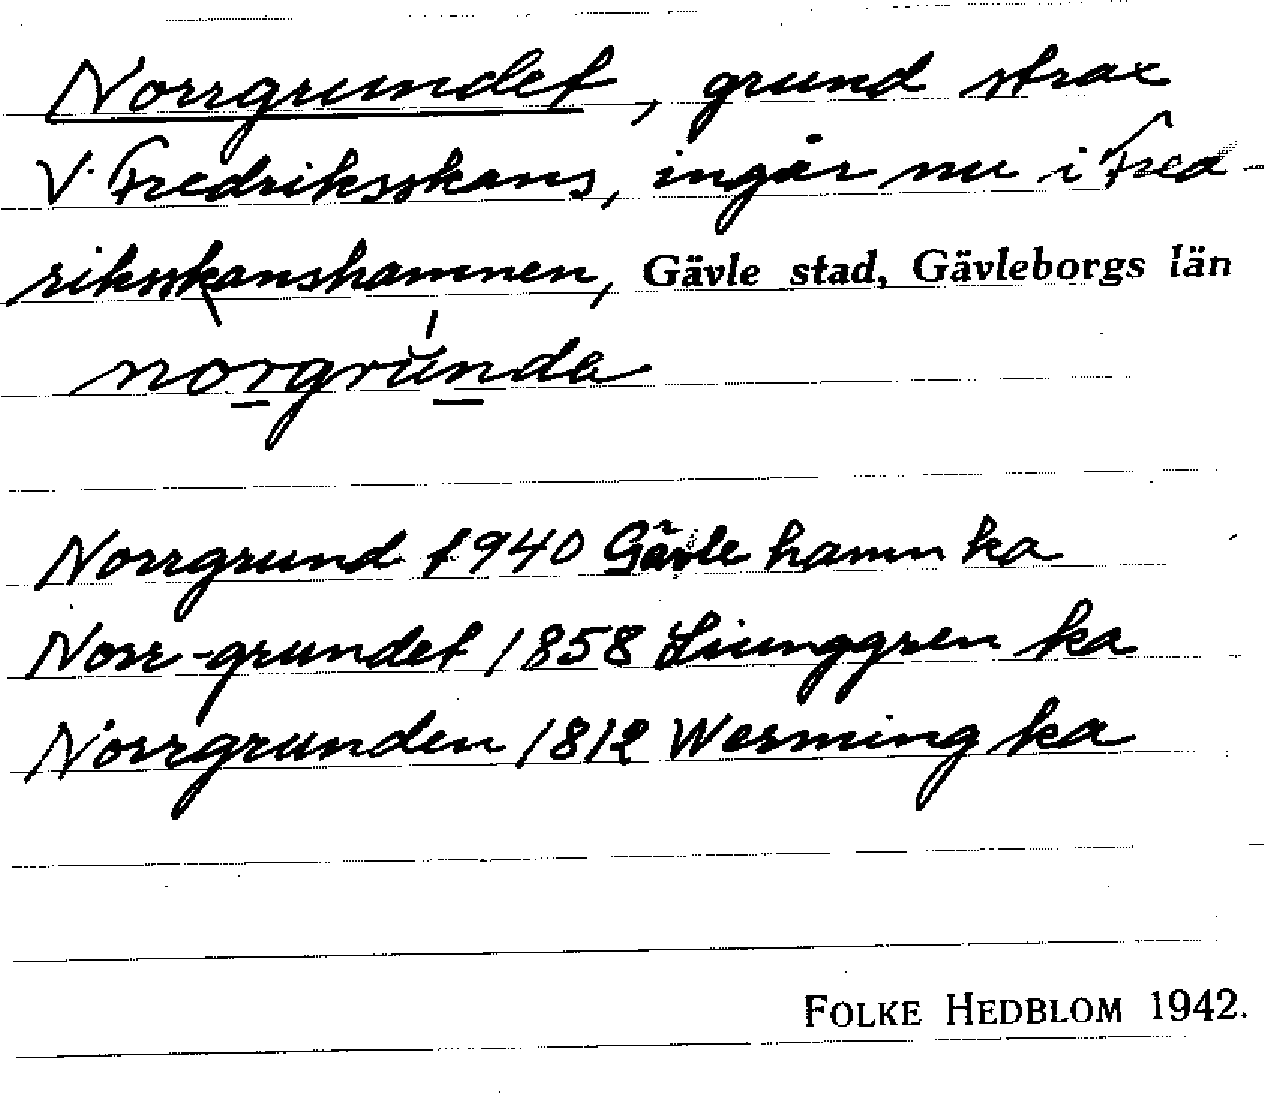 Norrgrundet, grund strax
V. Fredriksskans, ingår nu i Fred-
riksskanshamnen, Gävle stad, Gävleborgs län
norgrunda
Norrgrund 1940 Gävle hamn ka
Norr-grundet 1858 Liunggren ka
Norrgrunden 1812 Werming ka
FOLKE HEDBLOM 1942.